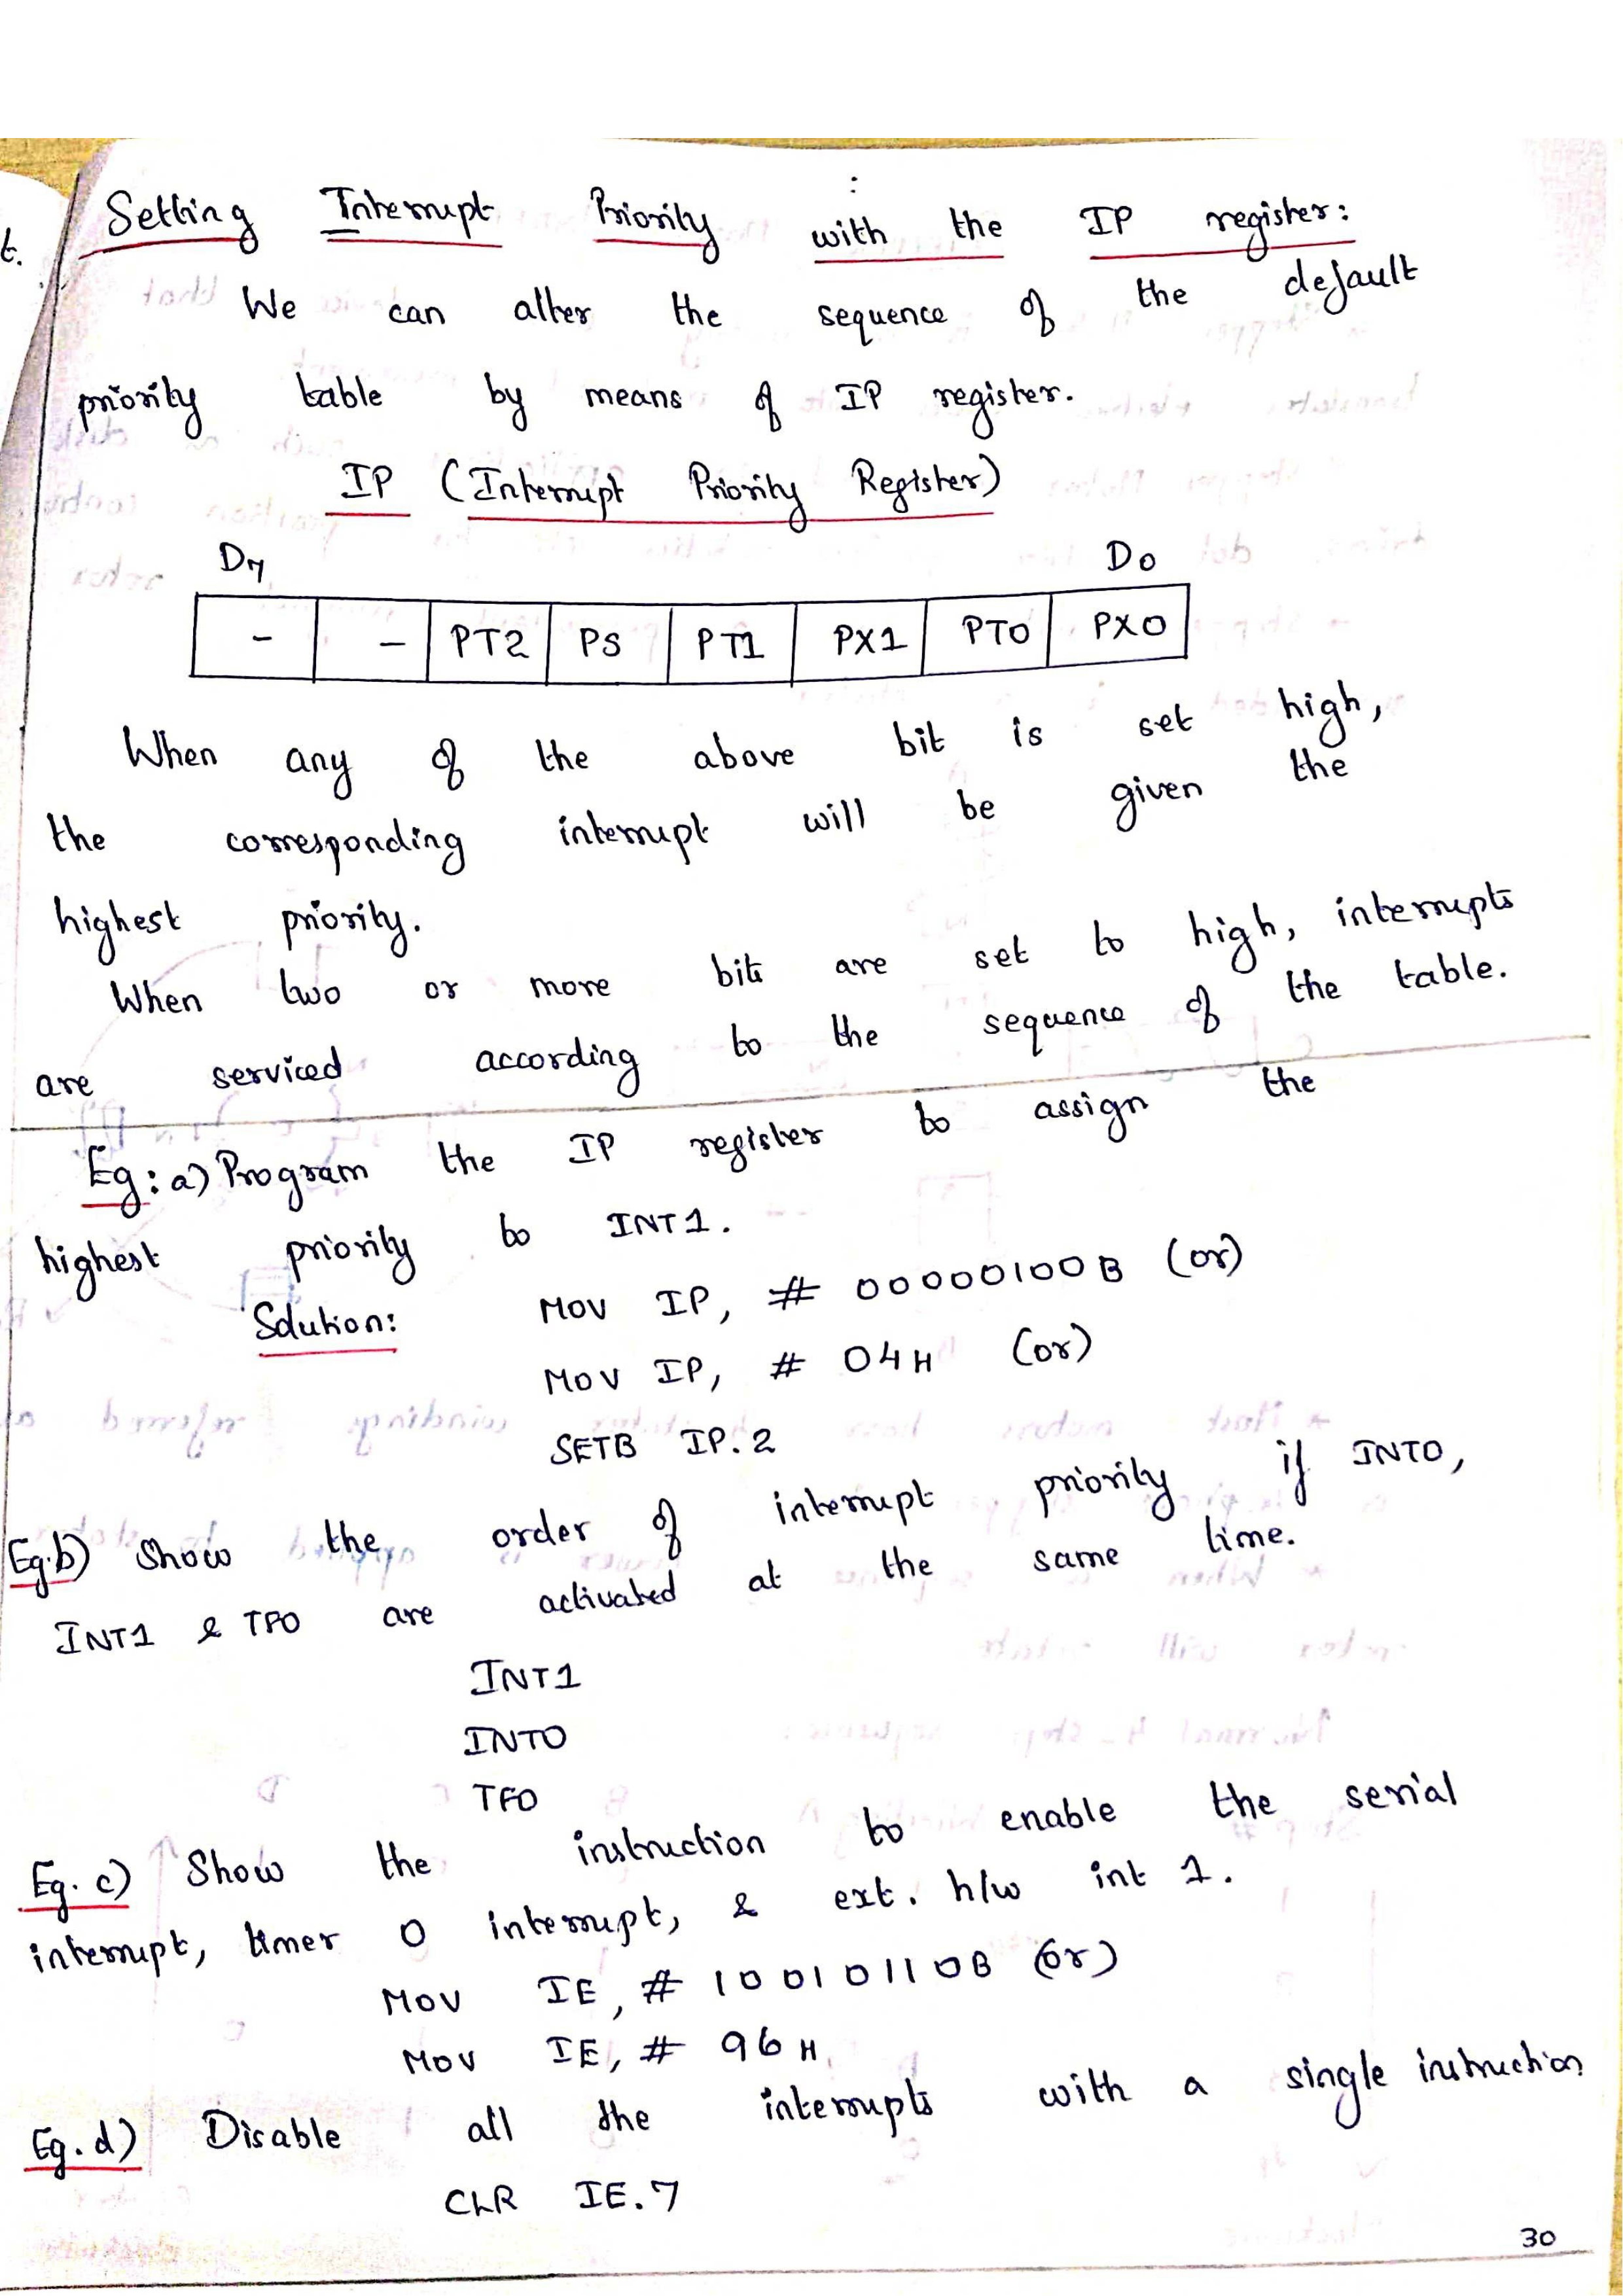 t.
Setting Interrupt Priority with the IP register:
We can alter the sequence of the default
priority table by means of IP register.
IP (Interrupt Priority Register)
D7 D0
- - PT2 PS PT1 PX1 PT0 PX0
When any of the above bit is set high,
the corresponding interrupt will be given the
highest priority.
When two or more bits are set to high, interrupts
are serviced according to the sequence of the table.
Eg: a) Program the IP register to assign the
highest priority to INT1.
Solution: MOV IP, # 00000100B (or)
MOV IP, # 04H (or)
SETB IP.2
Eg.b) Show the order of interrupt priority if INT0,
INT1 & TF0 are activated at the same time.
INT1
INT0
TF0
Eg. c) Show the instruction to enable the serial
interrupt, timer 0 interrupt, & ext. h/w int 1.
MOV IE, # 10010110B (or)
MOV IE, # 96H
Eg. d) Disable all the interrupts with a single instruction
CLR IE.7
30